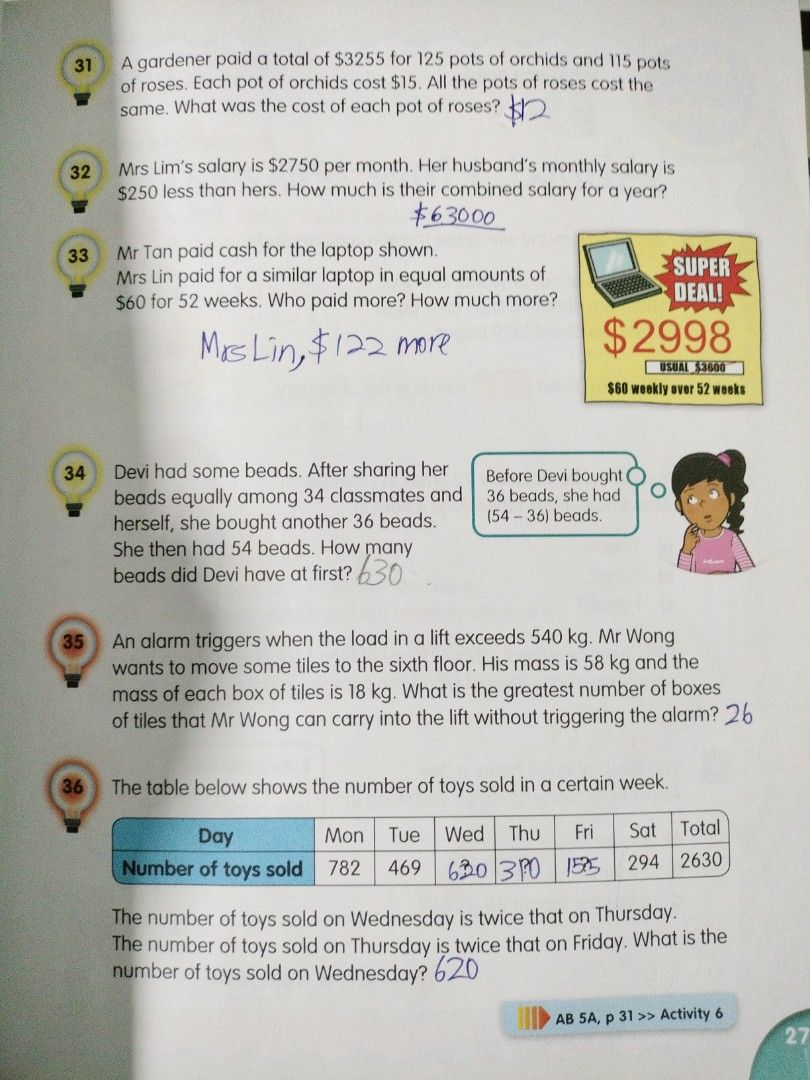 31 A gardener paid a total of $3255 for 125 pots of orchids and 115 pots
of roses. Each pot of orchids cost $15. All the pots of roses cost the
same. What was the cost of each pot of roses? $12
32 Mrs Lim's salary is $2750 per month. Her husband's monthly salary is
$250 less than hers. How much is their combined salary for a year?
$63000
33 Mr Tan paid cash for the laptop shown.
Mrs Lin paid for a similar laptop in equal amounts of
$60 for 52 weeks. Who paid more? How much more?
Mrs Lin, $122 more
SUPER
DEAL!
$2998
USUAL $3600
$60 weekly over 52 weeks
34 Devi had some beads. After sharing her
beads equally among 34 classmates and
herself, she bought another 36 beads.
She then had 54 beads. How many
beads did Devi have at first? 630
Before Devi bought
36 beads, she had
(54 – 36) beads.
35 An alarm triggers when the load in a lift exceeds 540 kg. Mr Wong
wants to move some tiles to the sixth floor. His mass is 58 kg and the
mass of each box of tiles is 18 kg. What is the greatest number of boxes
of tiles that Mr Wong can carry into the lift without triggering the alarm? 26
36 The table below shows the number of toys sold in a certain week.
Day Mon Tue Wed Thu Fri Sat Total
Number of toys sold 782 469 620 310 155 294 2630
The number of toys sold on Wednesday is twice that on Thursday.
The number of toys sold on Thursday is twice that on Friday. What is the
number of toys sold on Wednesday? 620
AB 5A, p 31 >> Activity 6
27